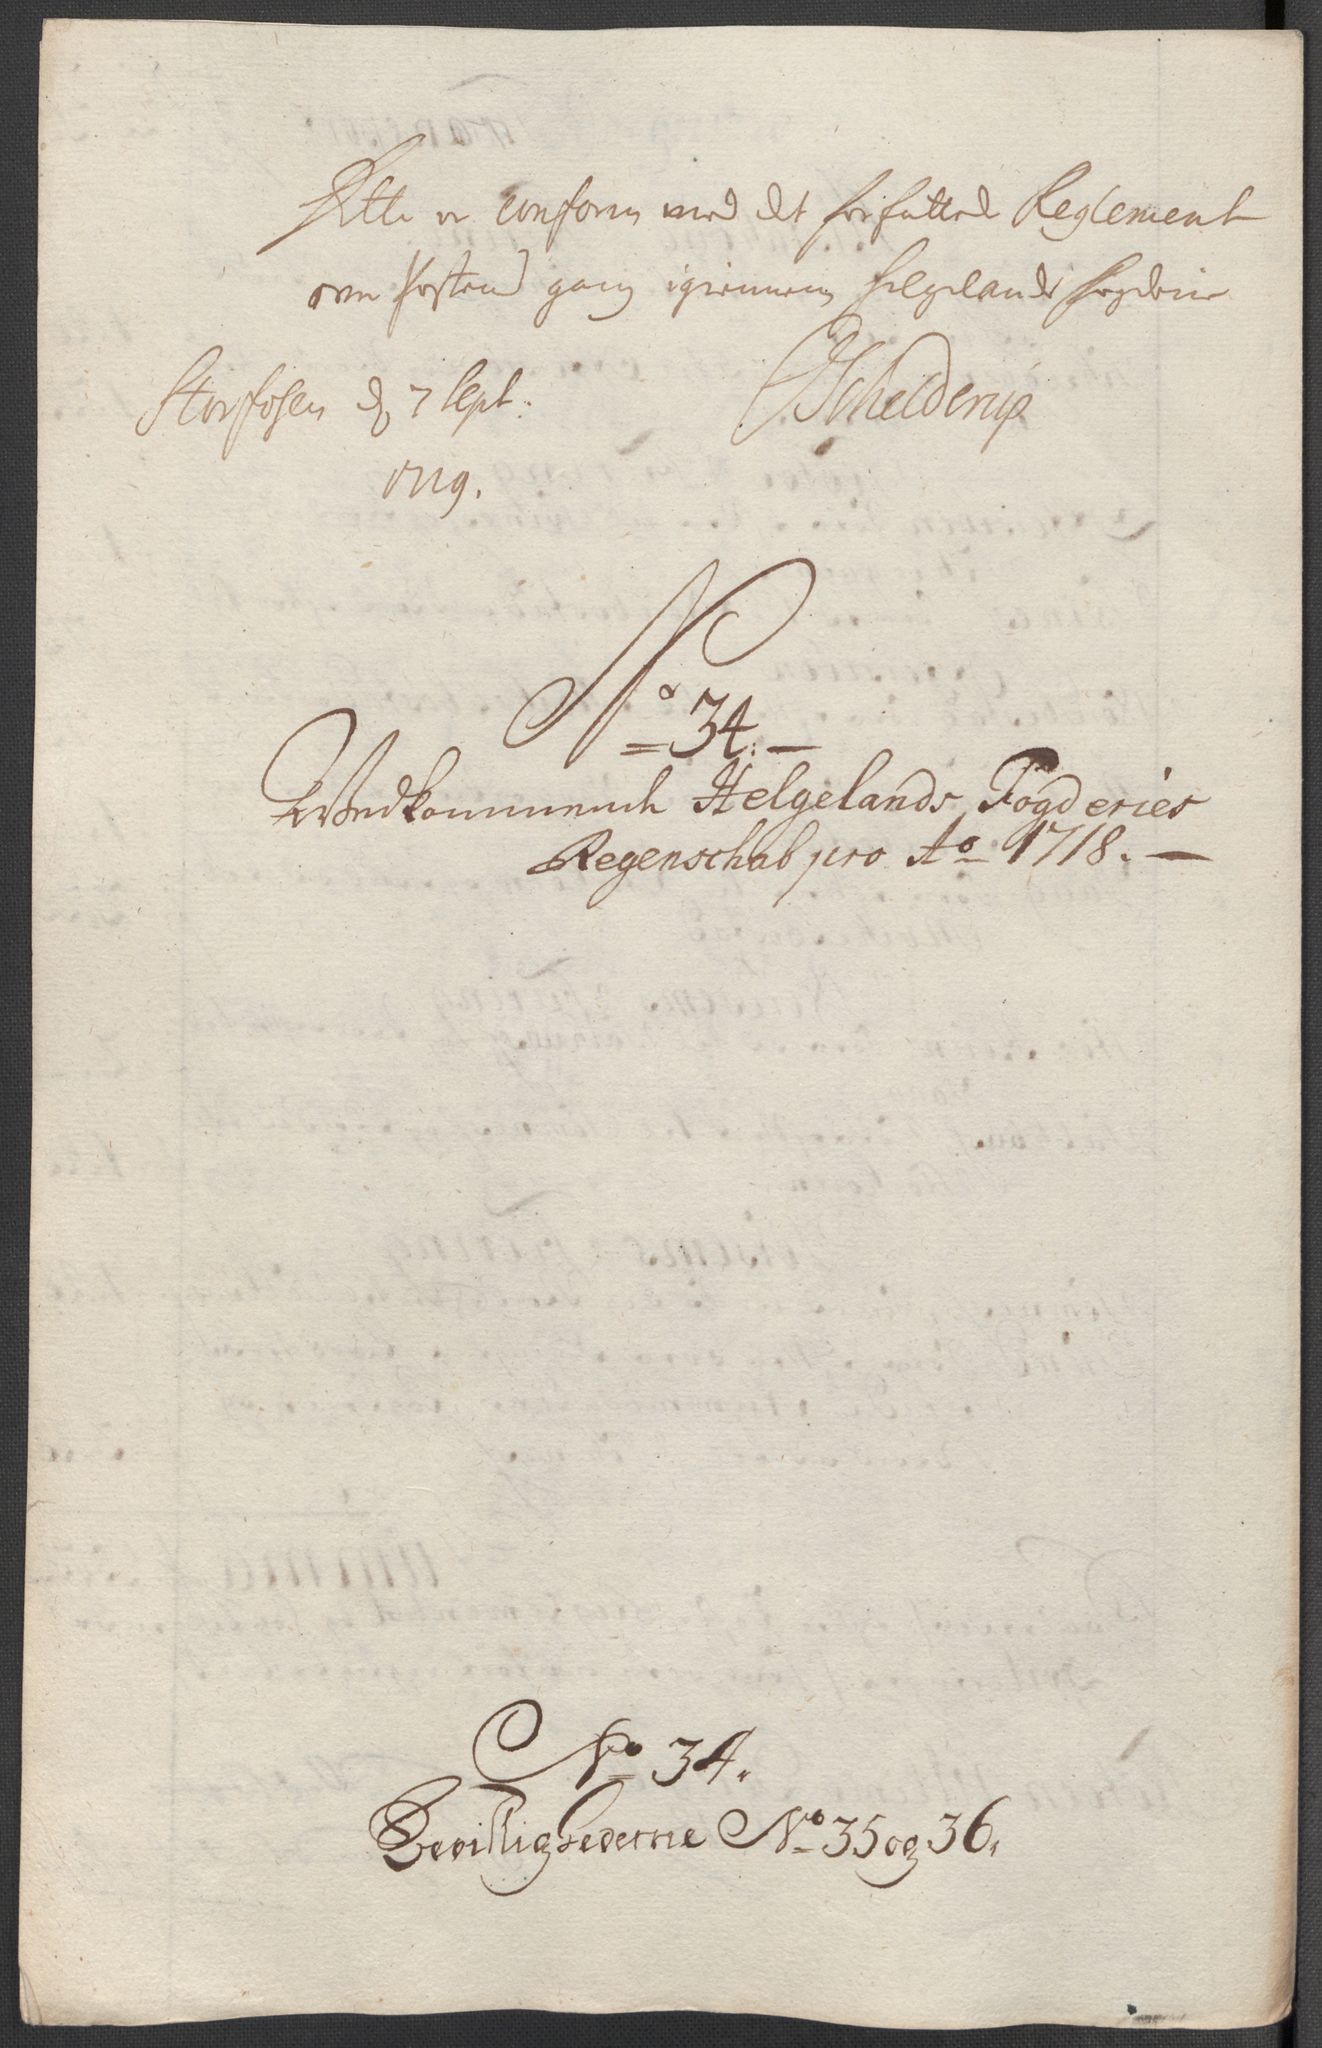 Dette er conform med det forfattede Reglement
over Postens gang igiennem Helgelands fogderie
Storfosen d 7 Sept:
Schelderup
1719.
No
34.
Wedkommende Helgelands Fogderies
Regenschab pro Ao 1718.
No 34.
Bevillighederne No 35 og 36.